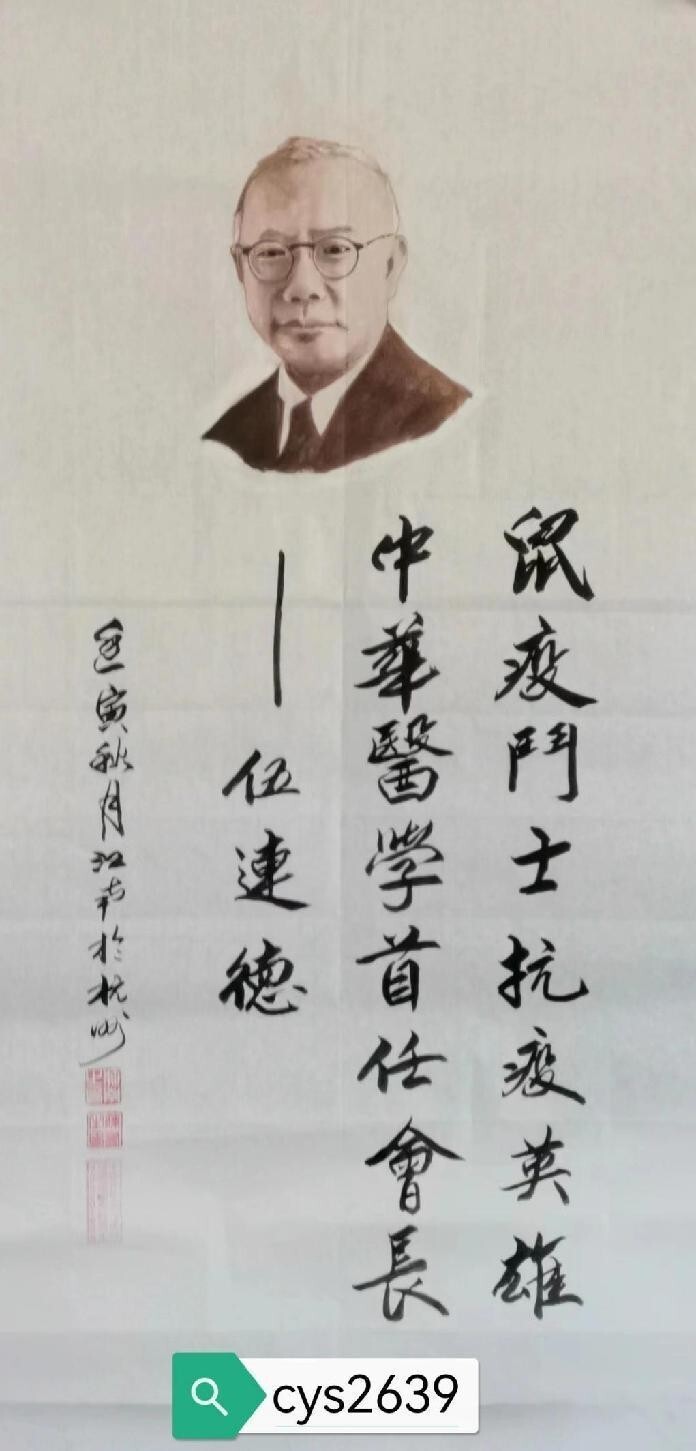 鼠疫鬥士抗疫英雄
中華醫學首任會長
——伍連德
寅秋月江南於杭州
cys2639